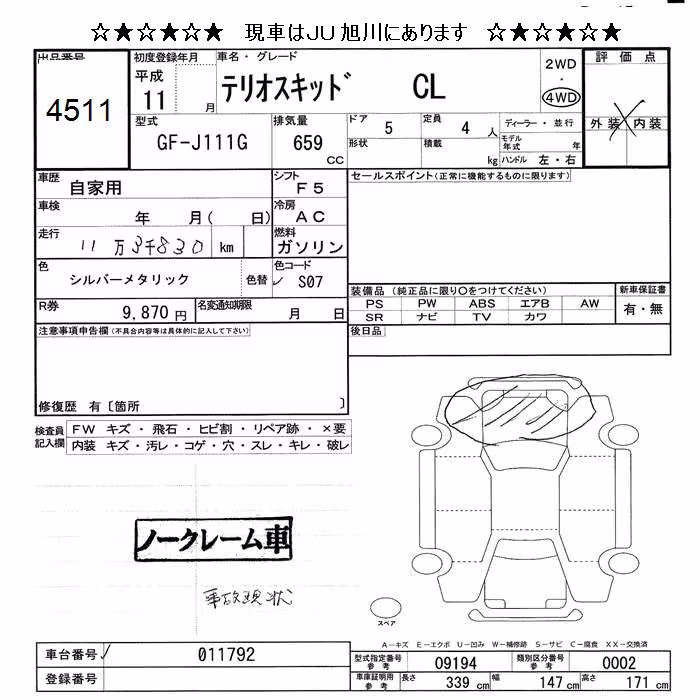 ☆★☆★☆★ 現車はJU旭川にあります ★☆★☆★☆
出品番号
4511
初度登録年月
平成
11 月
車名・グレード
テリオスキッド CL
2WD
・
4WD
評価点
外装 内装
型式
GF-J111G
排気量
659
CC
ドア
5
定員
4 人
ディーラー・並行
形状
積載
kg
モデル
年式 年
ハンドル 左・右
車歴
自家用
シフト
F5
セールスポイント(正常に機能するものに限ります)
車検
年 月( 日)
冷房
AC
走行
11万3千830 km
燃料
ガソリン
色
シルバーメタリック
色替
色コード
S07
装備品 (純正品に限り○をつけてください)
新車保証書
PS PW ABS エアB AW
SR ナビ TV カワ
有・無
R券
9,870 円
名変通知期限
月 日
後日品
注意事項申告欄(不具合内容等は具体的に記入して下さい)
修復歴 有〔箇所 〕
検査員
記入欄
FW キズ・飛石・ヒビ割・リペア跡・×要
内装 キズ・汚レ・コゲ・穴・スレ・キレ・破レ
ノークレーム車
事故現状
スペア
A-キズ E-エクボ U-凹み W-補修跡 S-サビ C-腐食 XX-交換済
車台番号
011792
登録番号
型式指定番号
参考
09194
類別区分番号
参考
0002
車庫証明用
参考
長さ
339 cm
幅
147 cm
高さ
171 cm